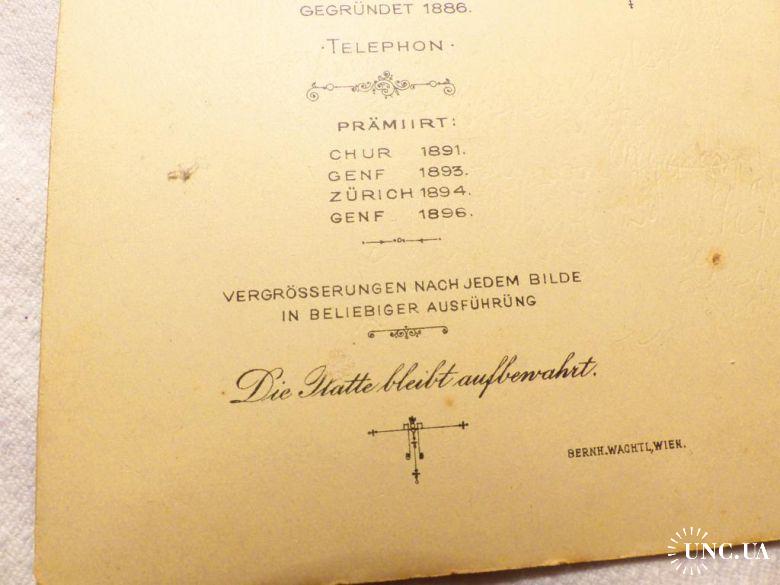 GEGRÜNDET 1886.
·TELEPHON·
PRÄMIIRT:
CHUR 1891.
GENF 1893.
ZÜRICH 1894.
GENF 1896.
VERGRÖSSERUNGEN NACH JEDEM BILDE
IN BELIEBIGER AUSFÜHRÜNG
Die Platte bleibt aufbewahrt.
BERNH. WACHTL, WIEN.
UNC.UA